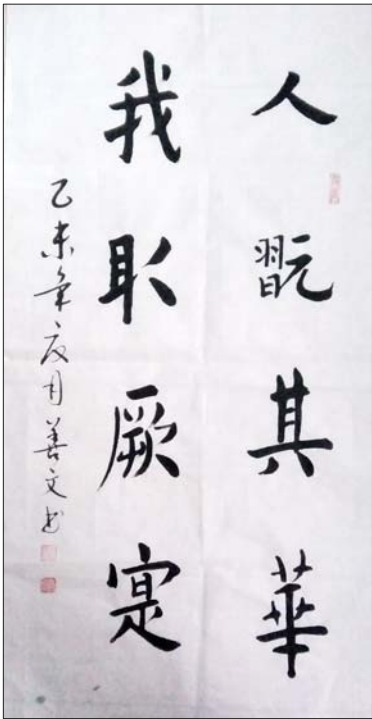 人翫其華
我取厥寔
乙未年夏月善文书